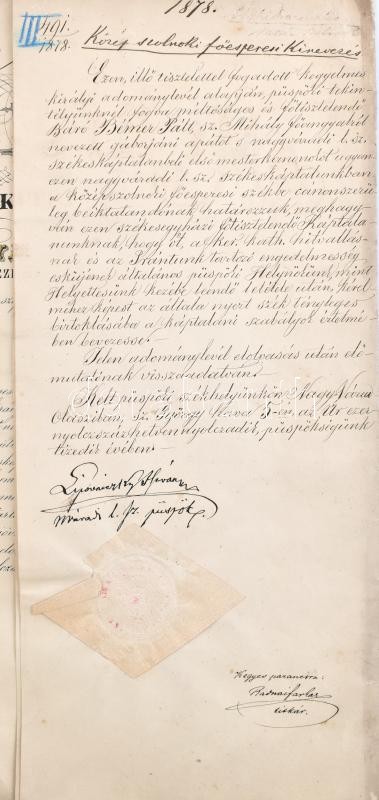 1878.
III 491.
1878.
Közép szolnoki főesperesi Kinevezés
Ezen, illő tisztelettel fogadott kegyelmes
királyi adománylevél alapján, püspöki tekin-
télyünknél fogva méltóságos és főtisztelendő
Báró Bémer Pált, sz. Mihály főangyalról
nevezett gáborjáni apátot s nagyváradi l. sz.
székeskáptalanbeli első mesterkanonokot ugyan-
ezen nagyváradi l. sz. székeskáptalanunkban
a középszolnoki főesperesi székbe canonszerü-
leg beiktatandónak határozzuk, meghagy-
ván ezen székesegyházi főtisztelendő Kápta-
nunknak, hogy őt, a ker. kath. hitvallás-
nak és az Irántunk tartozó engedelmesség
esküjének általános püspöki Helynökünk, mint
Helyettesünk kezébe leendő letétele után, kérel-
méhez képest az általa nyert szék tényleges
birtoklásába a káptalani szabályok értelmé-
ben bevezesse.
Jelen adománylevél elolvasás után elő-
mutatónak visszaadatván.
Kelt püspöki székhelyünkön Nagy-Várad-
Olasziban, Sz. György hava 5-én, az Úr ezer-
nyolczszázhetvennyolczadik, püspökségünk
tizedik évében.
Lipovniczky István
n.váradi l. sz. püspök.
Kegyes parancsra:
Radnai Farkas
titkár.